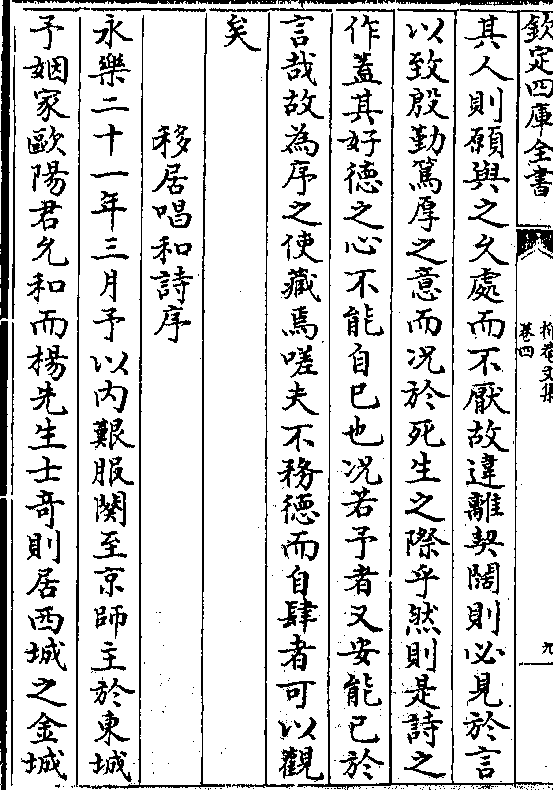 欽定四庫全書
卷四
九
其人則願與之久處而不厭故違離契闊則必見於言
以致殷勤篤厚之意而况於死生之際乎然則是詩之
作蓋其好德之心不能自已也况若予者又安能已於
言哉故為序之使藏焉嗟夫不務德而自肆者可以觀
矣
移居唱和詩序
永樂二十一年三月予以内艱服闋至京師主於東城
予姻家歐陽君允和而楊先生士竒則居西城之金城